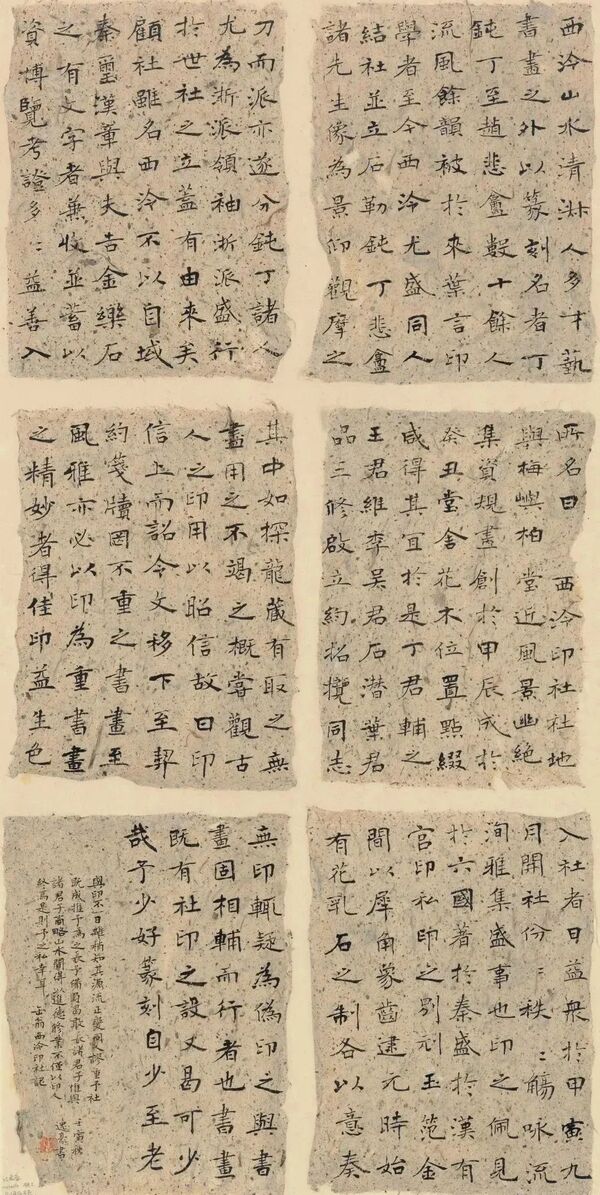 西泠山水清淑人多才藝
書畫之外以篆刻名者丁
鈍丁至趙悲盦數十餘人
流風餘韻被於來葉言印
學者至今西泠尤盛同人
結社並立石勒鈍丁悲盦
諸先生像為景仰觀摩之
所名曰 西泠印社社地
與梅嶼柏堂近風景幽絕
集資規畫創於甲辰成於
癸丑堂舍花木位置點綴
咸得其宜於是丁君輔之
王君維季吳君石潛葉君
品三修啟立約招攬同志
入社者日益眾於甲寅九
月開社份〻秩〻觴咏流
洵雅集盛事也印之佩見
於六國著於秦盛於漢有
官印私印之別刓玉范金
間以犀角象齒逮元時始
有花乳石之制各以意奏
刀而派亦遂分鈍丁諸人
尤為浙派領袖浙派盛行
於世社之立蓋有由來矣
顧社雖名西泠不以自域
秦璽漢章與夫吉金樂石
之有文字者兼收並蓄以
資博覽考證多〻益善入
其中如探龍藏有取之無
盡用之不竭之概嘗觀古
人之印用以昭信故曰印
信上而詔令文移下至契
約箋牘罔不重之書畫至
風雅亦必以印為重書畫
之精妙者得佳印益生色
無印輒疑為偽印之與書
畫固相輔而行者也書畫
既有社印之設又曷可少
哉予少好篆刻自少至老
與印不一日離稍知其源流正變同人謬重予社
既成推予為之長予備員曷敢長諸君子惟與
諸君子商略山水間得以進德修業不僅以印人
終焉是則予之私幸耳 缶翁西泠印社記
壬寅穐
書